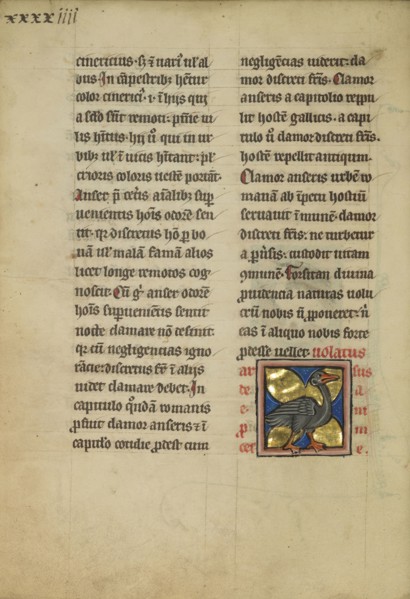 xxxxiiij
cinericius. sꝫ ⁊ uariꝰ ul' al
bus. In cāpestribꝫ hētur
color cinericiꝰ. i. ī hiis qui
a sclō sūt remoti. pnīe ui
lis hītus. hii ū qui in ur
bibꝫ ul' ī uicis hītant: pl'
crioris coloris ueste portant.
Anser p̄ cetis aīalibꝫ sup
uenientis hoīs odorē sen
tit. qr discretus hō ꝑ bo
nā ul' malā famā alios
licet longe remotos cog
noscit. Cū gͦ anser odorē
hoīs supuenientis sentit
nocte clamare nō desinit.
qr cū negligencias igno
rācie: discretus fr̄ ī aliis
uidet clamare debet. In
capitulo qͦndā romanis
ꝓfuit clamor anseris ⁊ ī
capitlo cotidie ꝓdest cum
negligēcias uiderit: cla
mor discreti fr̄is. Clamor
anseris a capitolio reppu
lit hostē gallicus. a capi
tulo ū clamor discreti fr̄is.
hostē repellit antiquum.
Clamor anseris urbē ro
manam ab īpetu hostiū
seruauit īmunē. clamor
discreti fr̄is. ne turbetur
a ꝑuīsis: custodit uitam
cōmunē. Forsitan diuina
prudencia naturas uolu
crū nobis ū ꝓponeret: ū
eas ī aliquo nobis forte
prodesse uellet. uolatus
ar sus
de a
p m
cet e.